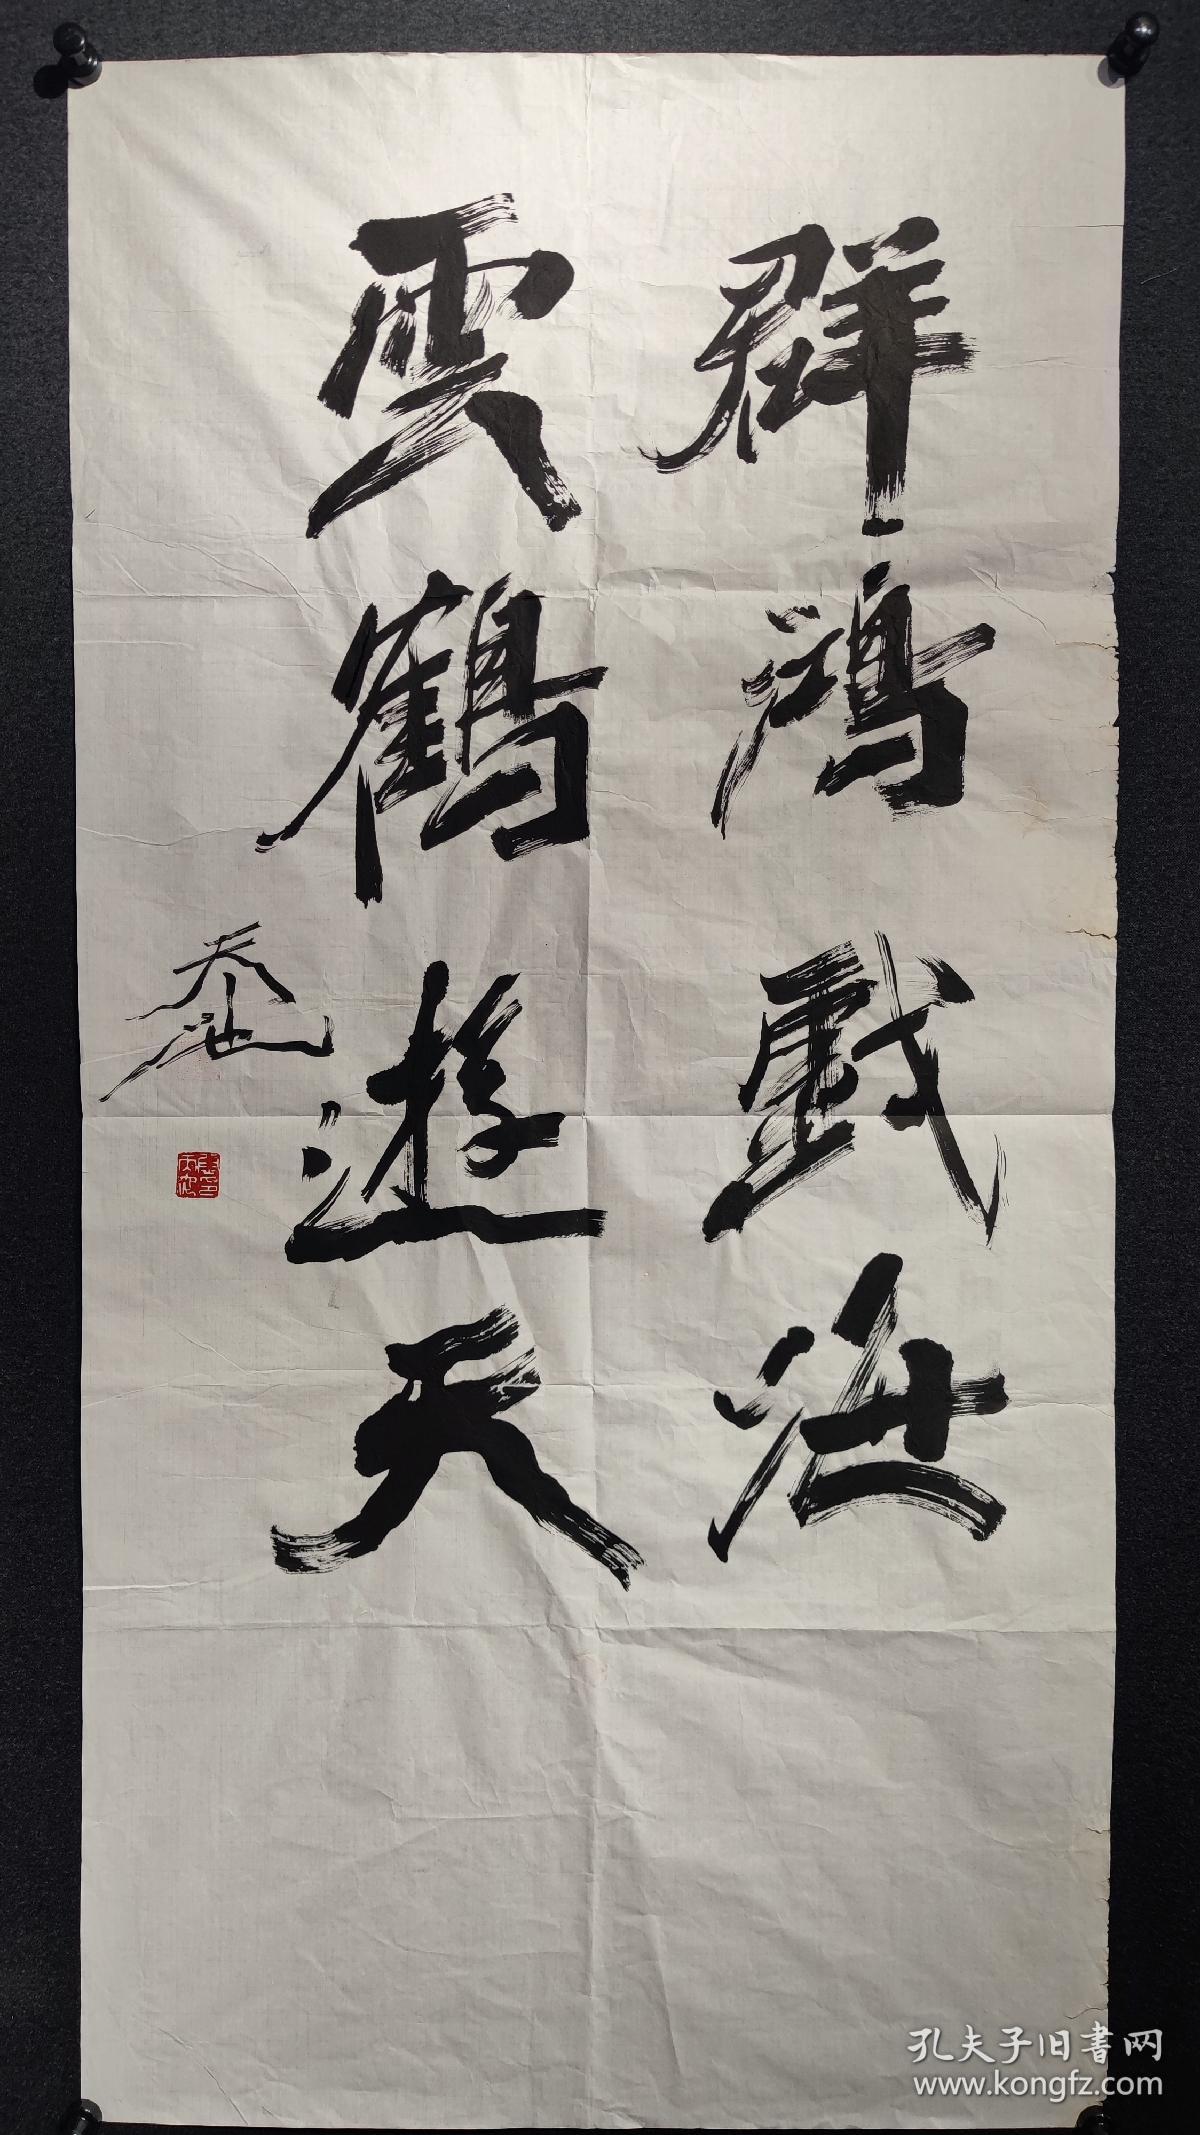 群鴻戲海
雲鶴遊天
天池
孔夫子旧書网
www.kongfz.com